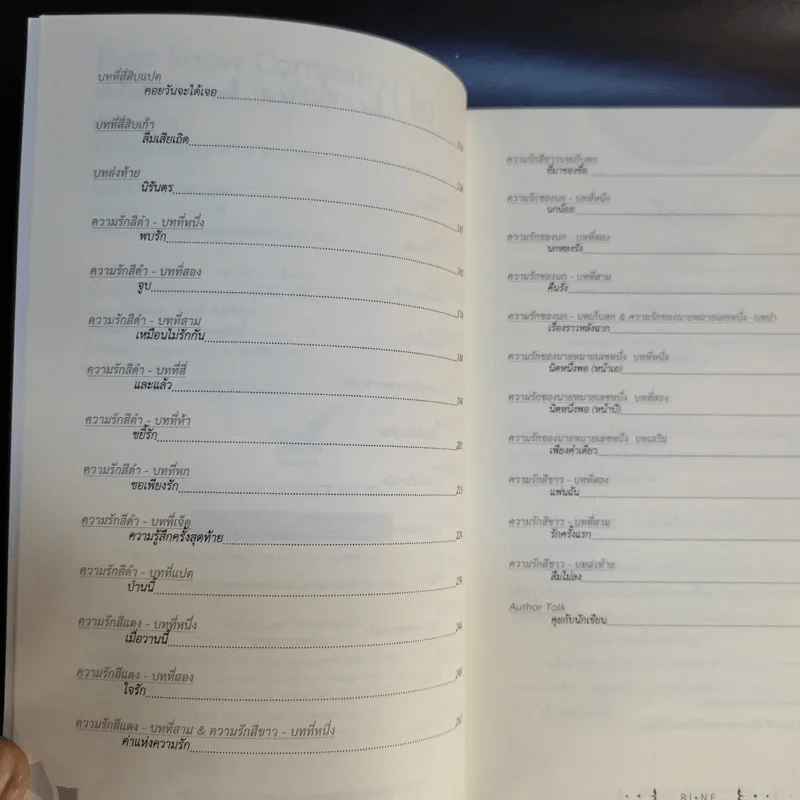 บทที่สี่สิบแปด
คอยวันจะได้เจอ
บทที่สี่สิบเก้า
ลืมเสียเถิด
บทส่งท้าย
นิรันดร
ความรักสีดำ - บทที่หนึ่ง
พบรัก
ความรักสีดำ - บทที่สอง
จูบ
ความรักสีดำ - บทที่สาม
เหมือนไม่รักกัน
ความรักสีดำ - บทที่สี่
และแล้ว 194
ความรักสีดำ - บทที่ห้า
ขยี้รัก 201
ความรักสีดำ - บทที่หก
ขอเพียงรัก 215
ความรักสีดำ - บทที่เจ็ด
ความรู้สึกครั้งสุดท้าย 224
ความรักสีดำ - บทที่แปด
ป่านนี้ 234
ความรักสีแดง - บทที่หนึ่ง
เมื่อวานนี้
ความรักสีแดง - บทที่สอง
ใจรัก
ความรักสีแดง - บทที่สาม & ความรักสีขาว - บทที่หนึ่ง
ค่าแห่งความรัก
ความรักสีขาวบทเก็บตก
ที่มาของชื่อ
ความรักของนก - บทที่หนึ่ง
นกน้อย
ความรักของนก - บทที่สอง
นกหลงรัง
ความรักของนก - บทที่สาม
คืนรัง
ความรักของนก - บทเก็บตก & ความรักของนายหมายเลขหนึ่ง -บทนำ
เรื่องราวหลังฉาก
ความรักของนายหมายเลขหนึ่ง บทที่หนึ่ง
นิดหนึ่งพอ (หน้าเอ)
ความรักของนายหมายเลขหนึ่ง บทที่สอง
นิดหนึ่งพอ (หน้าบี)
ความรักของนายหมายเลขหนึ่ง บทเสริม
เพียงคำเดียว
ความรักสีขาว - บทที่สอง
แฟนฉัน
ความรักสีขาว - บทที่สาม
รักครั้งแรก
ความรักสีขาว - บทส่งท้าย
ลืมไม่ลง
Author Talk
คุยกับนักเขียน